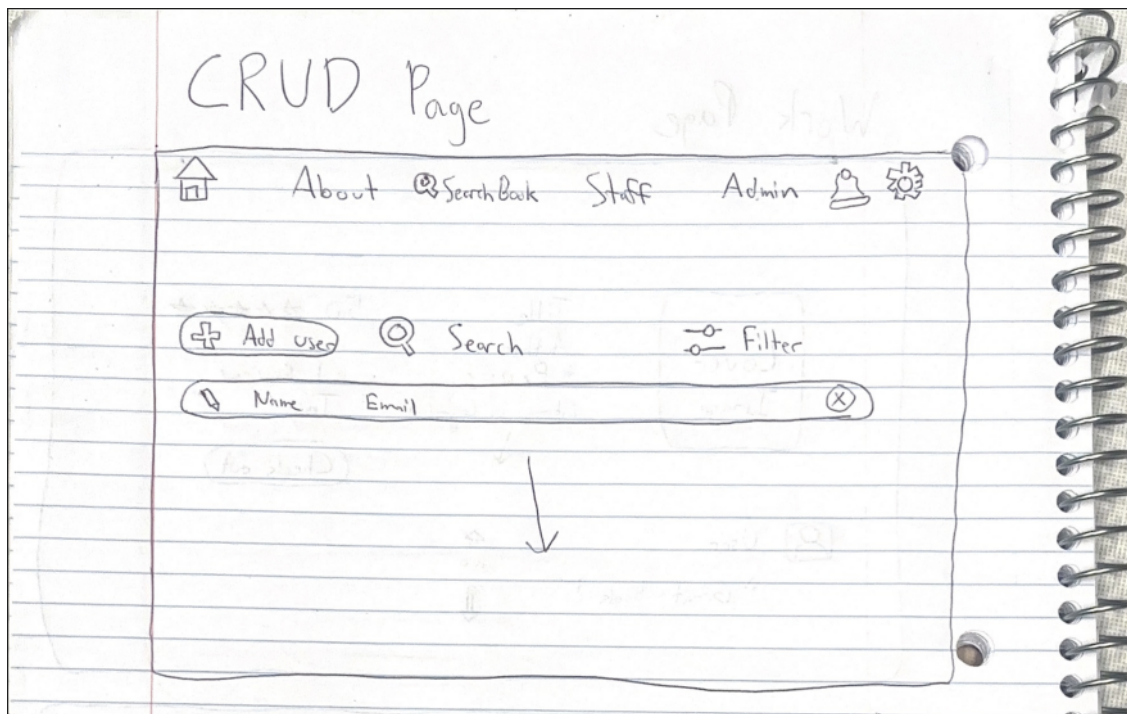 CRUD Page
About Search Book Staff Admin
Add user Search Filter
Name Email